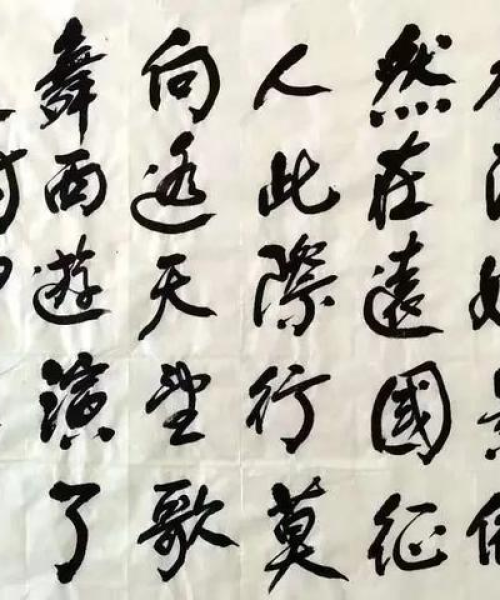 然在遠國征
人此際行莫
向遙天望歌
舞西遊演了